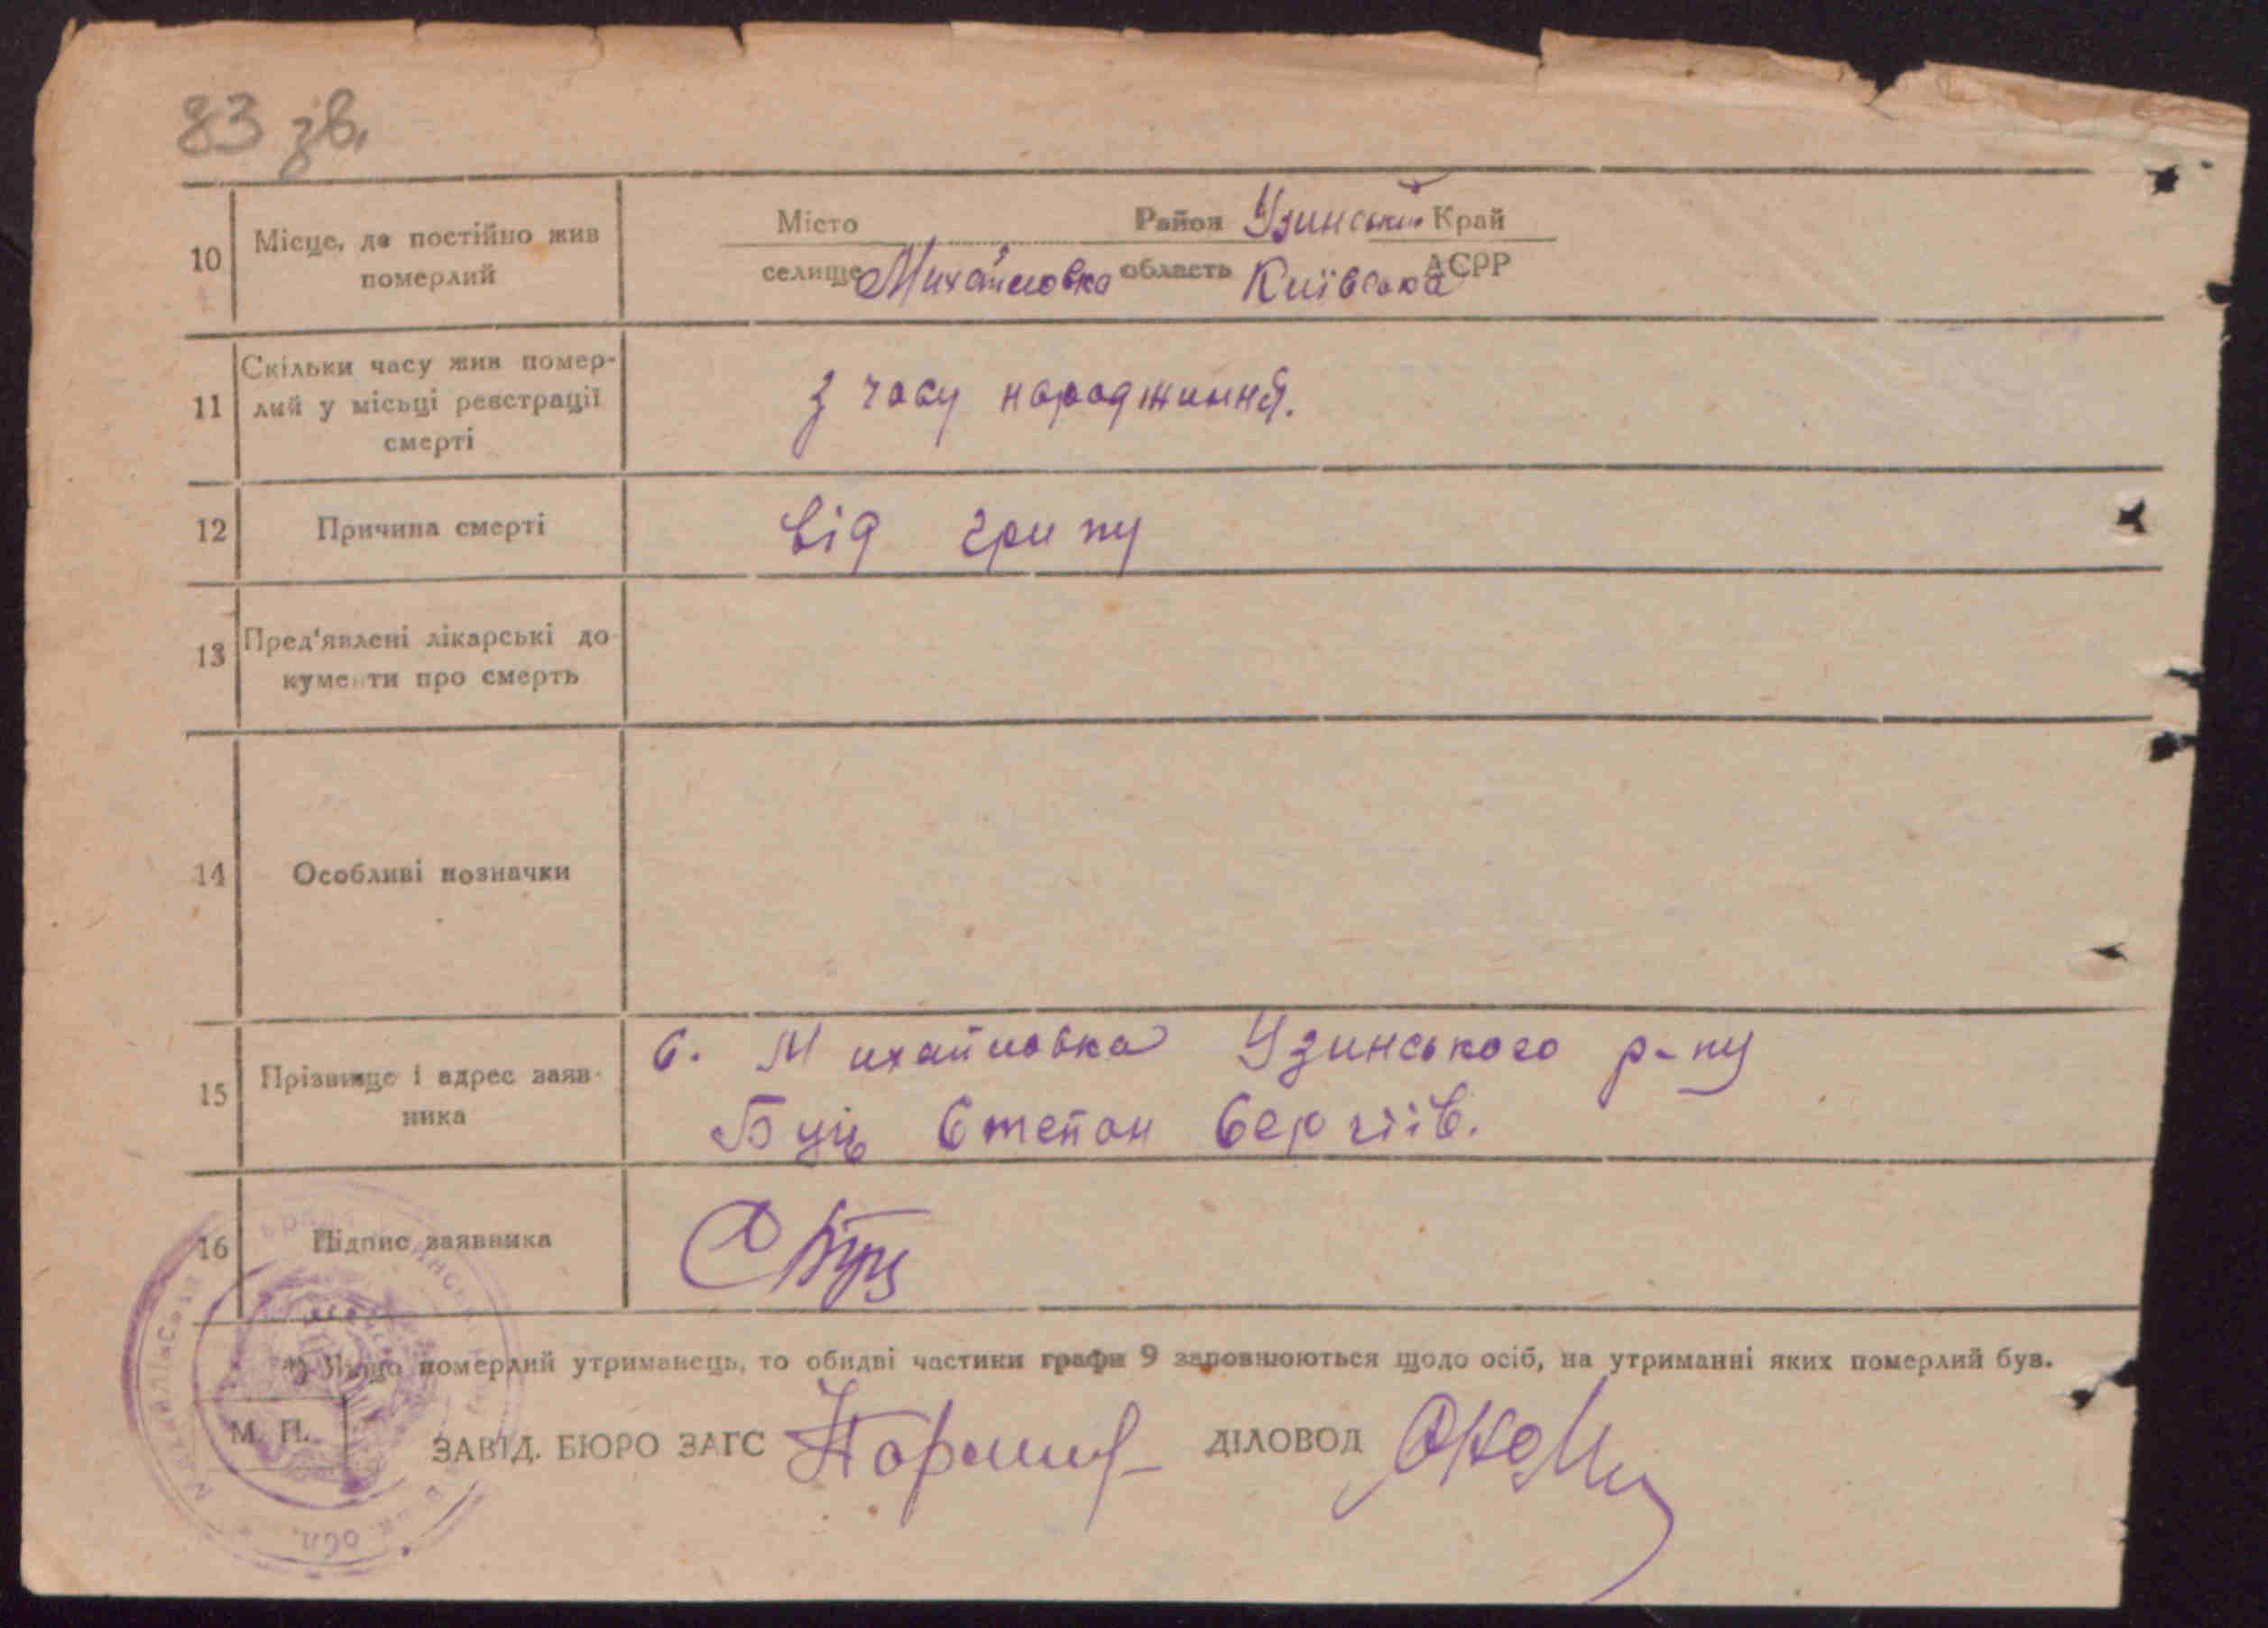 83 зв.
10 Місце, де постійно жив померлий
Місто Район Узинський Край
селище Михайловка область Київська АСРР
11 Скільки часу жив помер-
лий у місьці реєстрації
смерті
з часу народжиння.
12 Причина смерті від грипу
13 Пред'явлені лікарські до-
кументи про смерть
14 Особливі позначки
15 Прізвище і адрес заяв-
ника
с. Михайловка Узинського р-ну
Буц Степан Сергіїв.
16 Підпис заявника С Буц
*) Якщо померлий утриманець, то обидві частини графи 9 заповнюються щодо осіб, на утриманні яких померлий був.
М. П.
ЗАВІД. БЮРО ЗАГС ДІЛОВОД
обл.